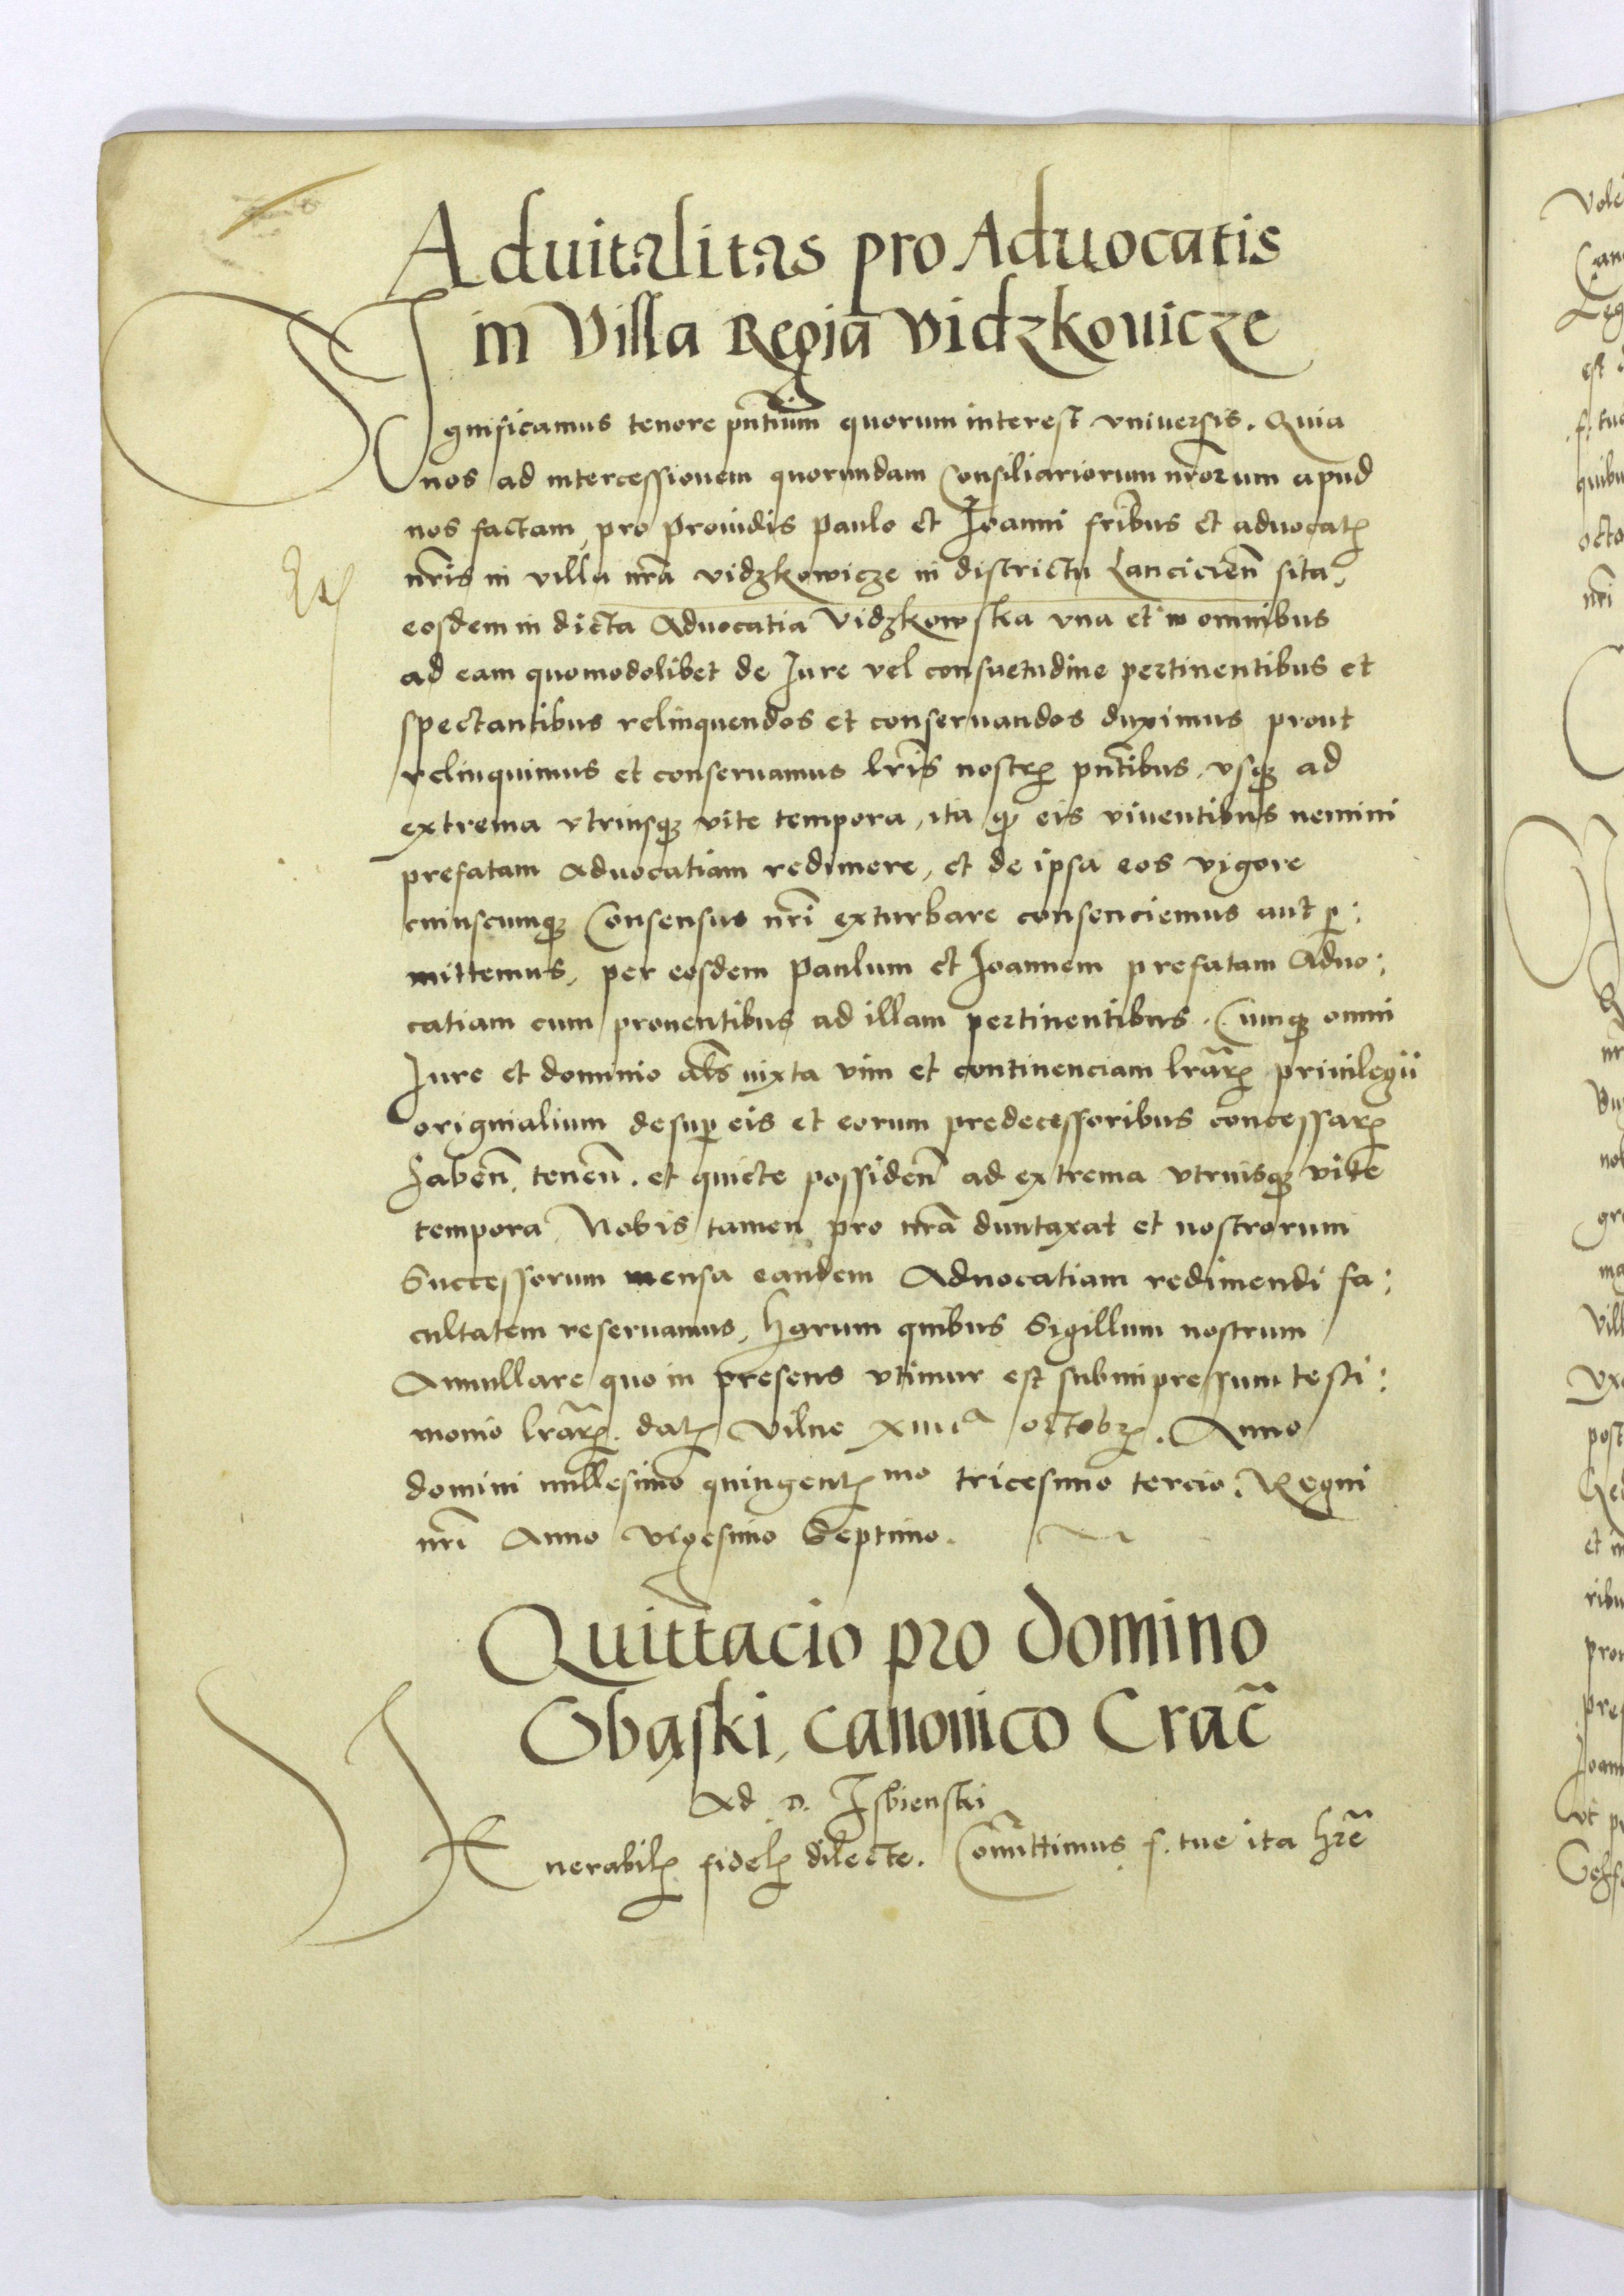 Aduitalitas pro Aduocatis
in Villa Regia Vidzkouicze
Significamus tenore pntium quorum interest vniuersis. Quia
nos ad intercessionem quorundam Consiliariorum nrorum apud
nos factam, pro prouidis Paulo et Joanni fribus et aduocatꝭ
nris in villa nra vidzkowicze in districtu Lanciciẽn sita,
eosdem in dicta Aduocatia Vidzkowska vna et in omnibus
ad eam quomodolibet de Jure vel consuetudine pertinentibus et
spectantibus relinquendos et conseruandos duximus prout
relinquimus et conseruamus lris nostrꝭ pntibus, vsqꝫ ad
extrema vtriusqꝫ vite tempora, ita qꝫ eis viuentibus nemini
prefatam aduocatiam redimere, et de ipsa eos vigore
cuiuscumqꝫ Consensus nri exturbare consenciemus aut ꝑ:
mittemus, per eosdem Paulum et Joannem prefatam Aduo:
catiam cum prouentibus ad illam pertinentibus. Cumqꝫ omni
Jure et dominio als iuxta vim et continenciam lrarꝭ priuilegii
originalium desuꝑ eis et eorum predecessoribus concessarꝭ
habeñ, teneñ. et quiete possideñ ad extrema vtriusqꝫ vite
tempora, Nobis tamen pro nra duntaxat et nostrorum
Successorum mensa eandem Aduocatiam redimendi fa:
cultatem reseruamus, Harum quibus Sigillum nostrum
Annullare quo in presens vtimur est subimpressum testi:
monio lrarꝭ. datꝭ Vilne octobrꝭ. Anno
domini millesimo quingentꝭmo tricesimo tercio. Regni
nri Anno vigesimo Septimo.
Quittacio pro domino
Obaski, canonico Crac̃
Ad D. Isbienski
Venerabilꝭ fidelꝭ dilecte. Comittimus f. tue ita hrẽ